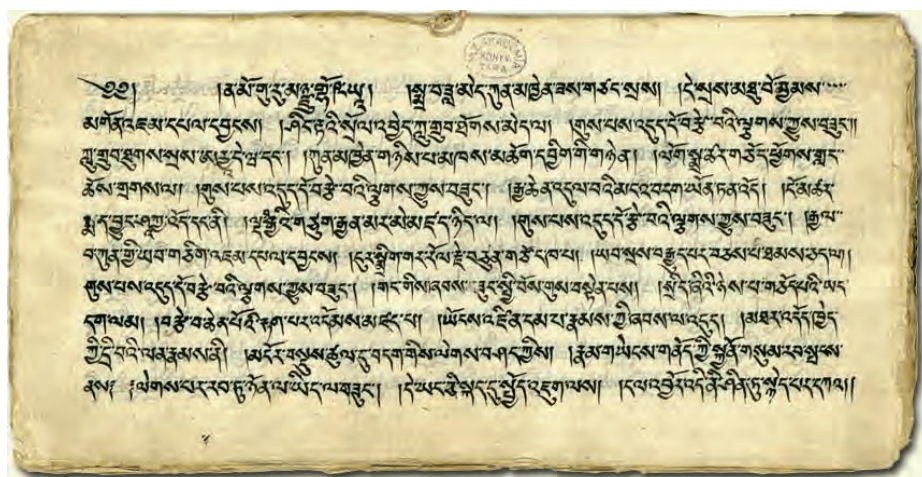 ༄༅། །ན་མོ་གུ་རུ་མཉྫུ་གྷོ་ཥཱ་ཡ། །སྨྲ་བ་ཟླ་མེད་ཀུན་མཁྱེན་ཟས་གཙང་སྲས། །དེ་སྲས་མཐུ་བོ་བྱམས་
མགོན་འཇམ་དཔལ་དབྱངས། །ཤིང་རྟའི་སོལ་འབྱེད་ཀླུ་གྲུབ་ཐོགས་མེད་ལ། །གུས་པས་འདུད་དོ་བརྩེ་བའི་ལྕགས་ཀྱུས་བཟུང་།།
ཀླུ་གྲུབ་ཐུགས་སྲས་ཨཱརྱ་དེ་ཝ་དང་། །ཀུན་མཁྱེན་གཉིས་པ་མཁས་མཆོག་དབྱིག་གི་གཉེན། །ལེགོ་སྨྲ་ཚར་གཅོད་ཕྱོགས་གླང་
ཆོས་གྲགས་ལ། །གུས་པས་འདུད་དོ་བརྩེ་བའི་ལྕགས་ཀྱུས་བཟུང་། །རྒྱ་ཆེན་འདུལ་བའི་མངའ་བདག་ཡོན་ཏན་འོད། །ངོ་མཚར་
རྨད་བྱུང་ཤཱཀྱ་འོད་དང་ནི། །ལྔ་རིག་གཙུག་རྒྱན་མར་མེ་མཛད་ཉིད་ལ། །གུས་པས་འདུད་དོ་བརྩེ་བའི་ལྕགས་ཀྱུས་བཟུང་། །རྒྱལ་
བ་ཀུན་གྱི་ཡབ་གཅིག་འཇམ་དཔལ་དབྱངས། །ངུར་སྨྲིག་གར་རོལ་རྗེ་བཙུན་གཙོང་ཁ་པ། །ཡབ་སྲས་བརྒྱུད་པར་བཅས་པ་ཐམས་ཅད་ལ།
གུས་པས་འདུད་དོ་བརྩེ་བའི་ལྕགས་ཀྱུས་བཟུང་། །གང་གིས་ཞབས་ཟུང་སྤྱི་བོས་གུས་བསྟེན་པས། །སྲིད་ཞིའི་ཉེས་པ་གཅོད་པའི་ཡང་
དག་ལམ། །བརྩེ་བ་ཆེན་པོའི་རྟག་པར་འདོམས་མཛད་པ། །ཡོངས་འཛིན་དམ་པ་རྣམས་ཀྱི་ཞབས་ལ་འདུད། །མཐར་འདོད་ཁྱེད་
ཀྱི་དྲི་བའི་ལན་རྣམས་ནི། །མདོར་བསྡུས་ཚུལ་དུ་བདག་གིས་ལེགས་བཤད་ཀྱིས། །རྣམ་གཡེངས་གནོད་ཀྱི་སྐྱོན་གསུམ་རབ་སྤངས་
ནས། །ལེགས་པར་རབ་ཏུ་ཉོན་ལ་ཡིད་ལ་གཟུང་། །དེ་ཡང་ཙི་སྐད་དུ་སྤྱོད་འཇུག་ལས། །དལ་འབྱོར་འདི་ནི་ཤིན་ཏུ་རྙེད་པར་དཀའ།།